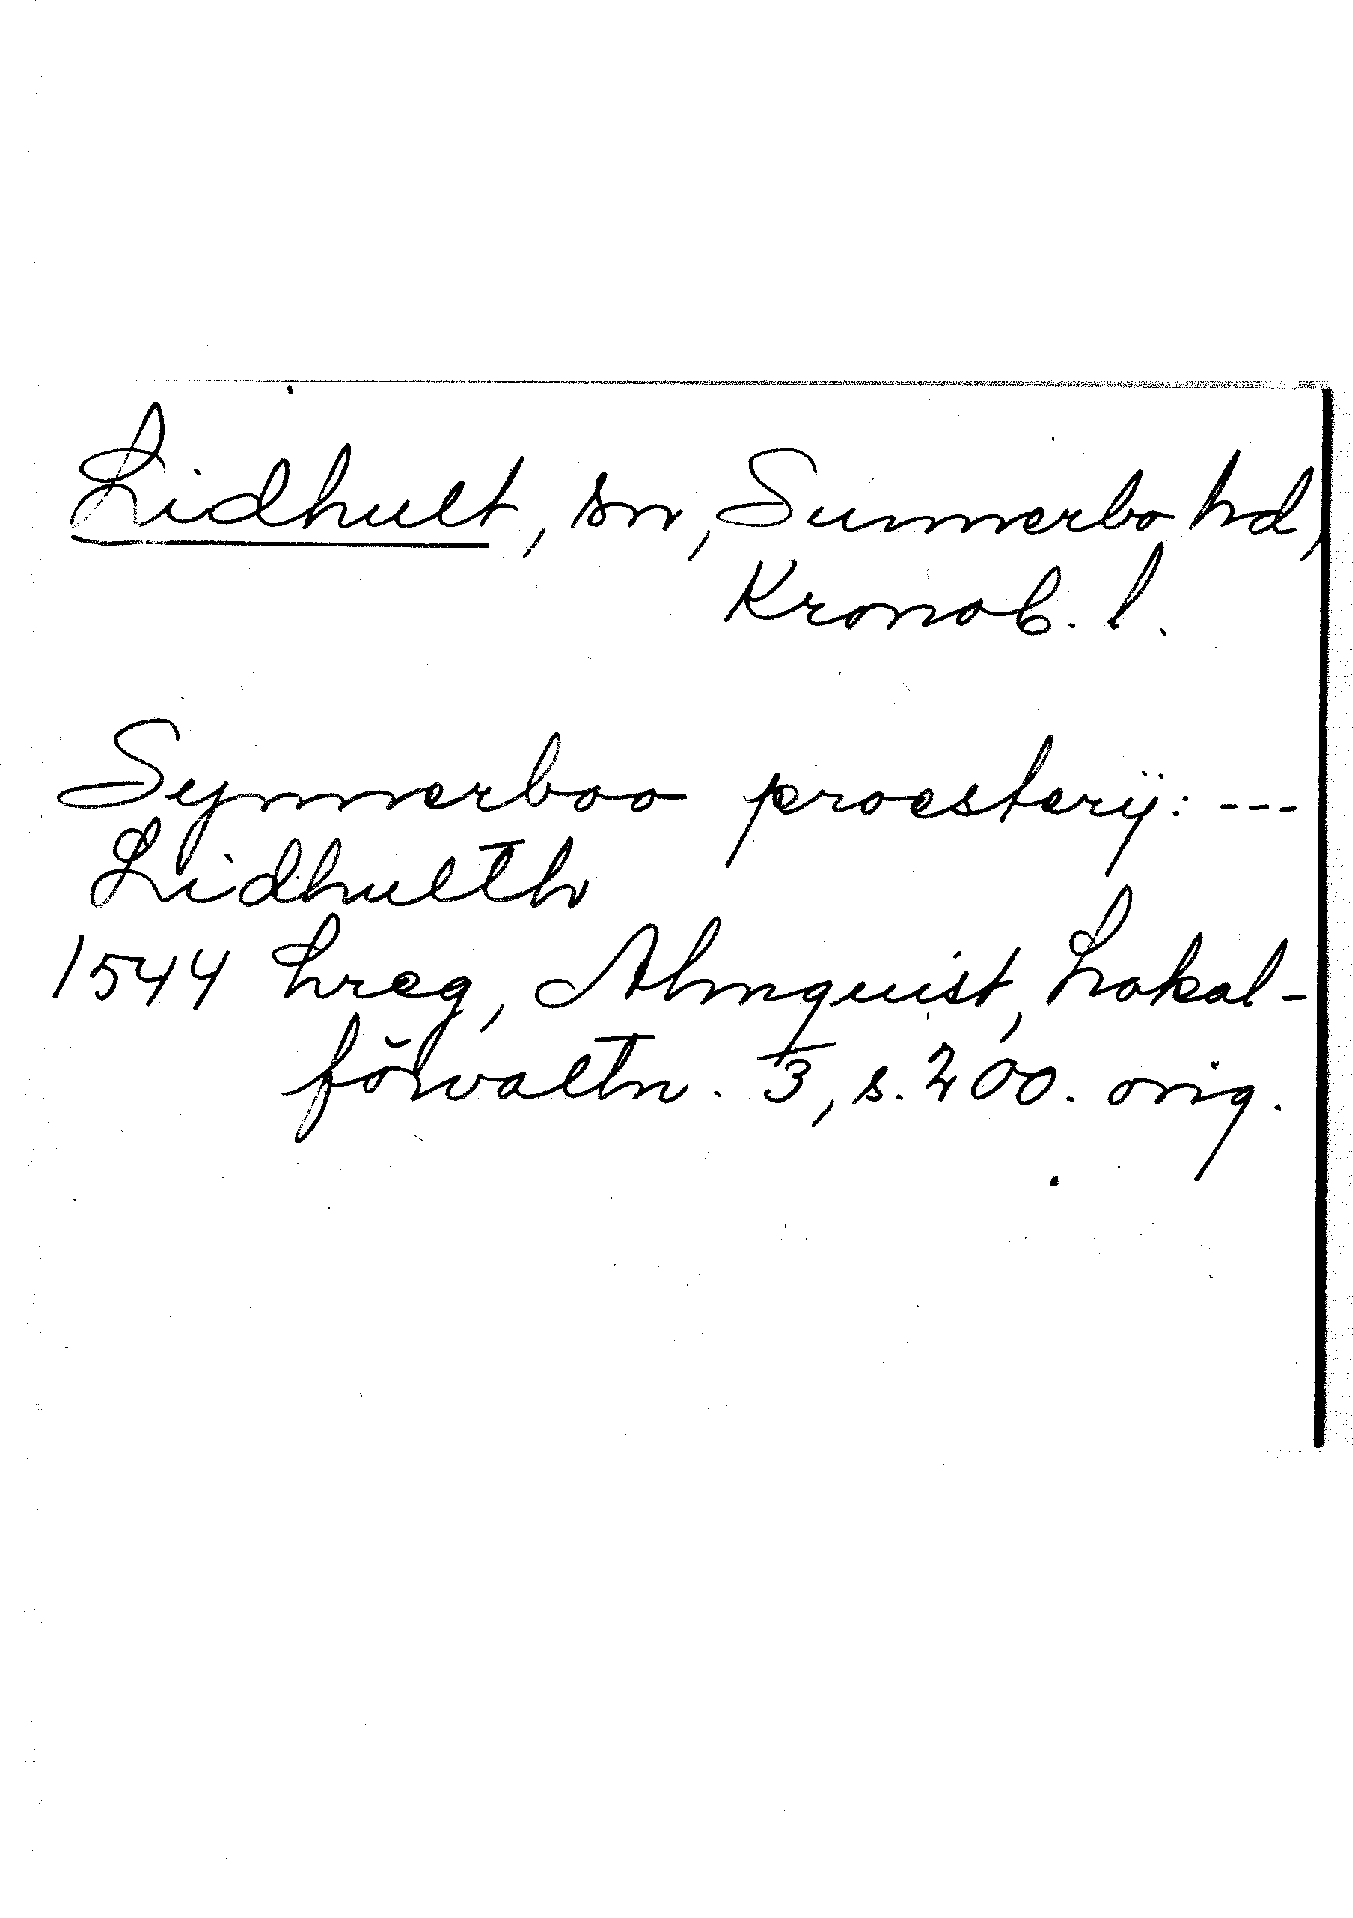 Lidhult, sn, Sunnerbo hd,
Kronob. l.
Synnerboo proesterij: ---
Lidhullth
1544 Lreg, Almquist, Lokal-
förvaltn. 3, s. 200. orig.